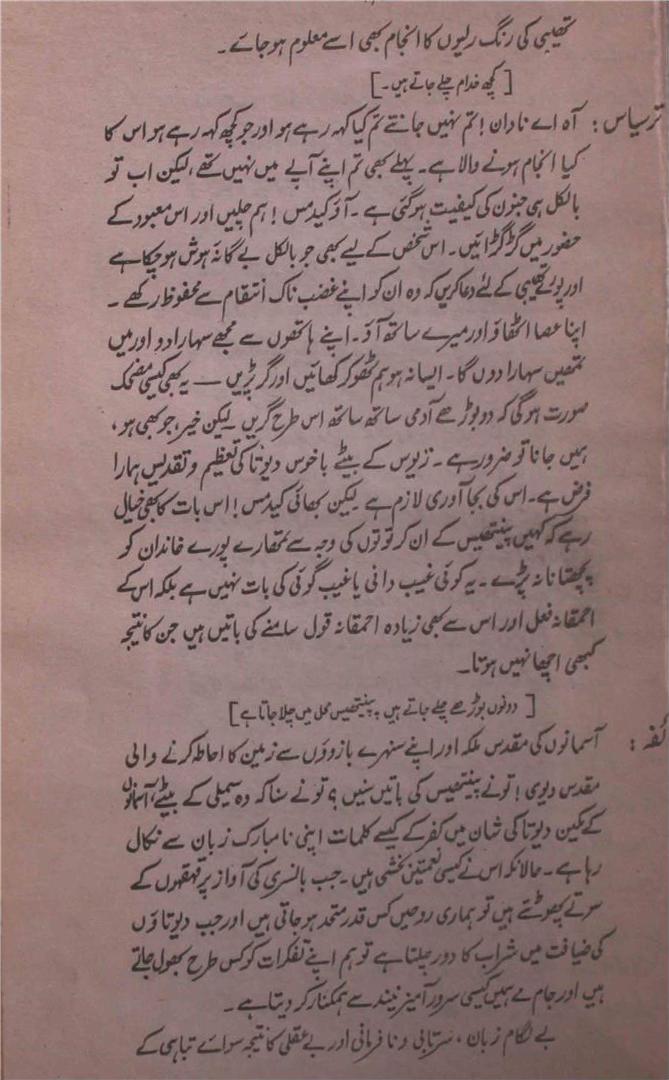 تھیبی کی رنگ رلیوں کا انجام بھی اسے معلوم ہو جائے۔
[کچھ خدام چلے جاتے ہیں۔]
ترسیاس: آہ اے نادان! تم نہیں جانتے تم کیا کہہ رہے ہو اور جو کچھ کہہ رہے ہو اس کا
کیا انجام ہونے والا ہے۔ پہلے بھی تم اپنے آپے میں نہیں تھے، لیکن اب تو
بالکل ہی جنون کی کیفیت ہو گئی ہے۔ آؤ کیدمس! ہم چلیں اور اس معبود کے
حضور میں گڑگڑائیں۔ اس شخص کے لیے بھی جو بالکل بے گانۂ ہوش ہو چکا ہے
اور پورے تھیبی کے لئے دعا کریں کہ وہ ان کو اپنے غضب ناک انتقام سے محفوظ رکھے۔
اپنا عصا اٹھاؤ اور میرے ساتھ آؤ۔ اپنے ہاتھوں سے مجھے سہارا دو اور میں
تمھیں سہارا دوں گا۔ ایسا نہ ہو ہم ٹھوکر کھائیں اور گر پڑیں — یہ بھی کیسی مضحک
صورت ہوگی کہ دو بوڑھے آدمی ساتھ ساتھ اس طرح گریں لیکن خیر، جو بھی ہو،
ہمیں جانا تو ضرور ہے۔ زیوس کے بیٹے باخوس دیوتا کی تعظیم و تقدیس ہمارا
فرض ہے۔ اس کی بجا آوری لازم ہے لیکن بھائی کیدمس! اس بات کا بھی خیال
رہے کہ کہیں پینتھیس کے ان کرتوتوں کی وجہ سے تمھارے پورے خاندان کو
پچھتانا نہ پڑے۔ یہ کوئی غیب دانی یا غیب گوئی کی بات نہیں ہے بلکہ اس کے
احمقانہ فعل اور اس سے بھی زیادہ احمقانہ قول سامنے کی باتیں ہیں جن کا نتیجہ
کبھی اچھا نہیں ہوتا۔
[دونوں بوڑھے چلے جاتے ہیں۔ پینتھیس محل میں چلا جاتا ہے]
ئفہ: آسمانوں کی مقدس ملکہ اور اپنے سنہرے بازوؤں سے زمین کا احاطہ کرنے والی
مقدس دیوی! تو نے پینتھیس کی باتیں سنیں؟ تو نے سنا کہ وہ سمیلی کے بیٹے، آسمانوں
کے مکین دیوتا کی شان میں کفر کے کیسے کلمات اپنی نامبارک زبان سے نکال
رہا ہے۔ حالانکہ اس نے کیسی نعمتیں بخشی ہیں۔ جب بانسری کی آواز پر قہقہوں کے
سوتے پھوٹتے ہیں تو ہماری روحیں کس قدر متحد ہو جاتی ہیں اور جب دیوتاؤں
کی ضیافت میں شراب کا دور چلتا ہے تو ہم اپنے تفکرات کو کس طرح بھول جاتے
ہیں اور جام مے ہمیں کیسی سرور آمیز نیند سے ہمکنار کر دیتا ہے۔
بے لگام زبان، سرتابی و نافرمانی اور بے عقلی کا نتیجہ سوائے تباہی کے